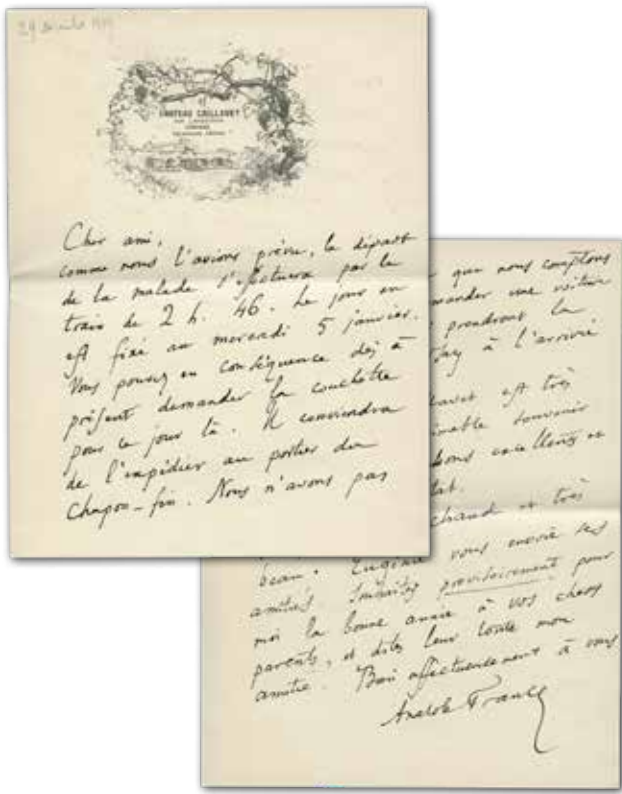 29
CHATEAU CAILLAVET
Cher ami,
comme nous l'avions prévu, le départ
de la malade s'effectuera par le
train de 2 h. 46. Le jour en
est fixé au mercredi 5 janvier.
Vous pouvez en conséquence dès à
présent demander la couchette
pour ce jour là. Il conviendra
de l'expédier au portier du
Chapon-fin. Nous n'avons pas
que nous comptons
mander une voiture
prendront la
à l'arrivée
est très
souvenir
bons excellents et
chaud et très
beau. Eugénie vous envoie ses
amitiés. Souhaitez provisoirement pour
moi la bonne année à vos chers
parents, et dites leur toute mon
amitié. Bien affectueusement à vous
Anatole France